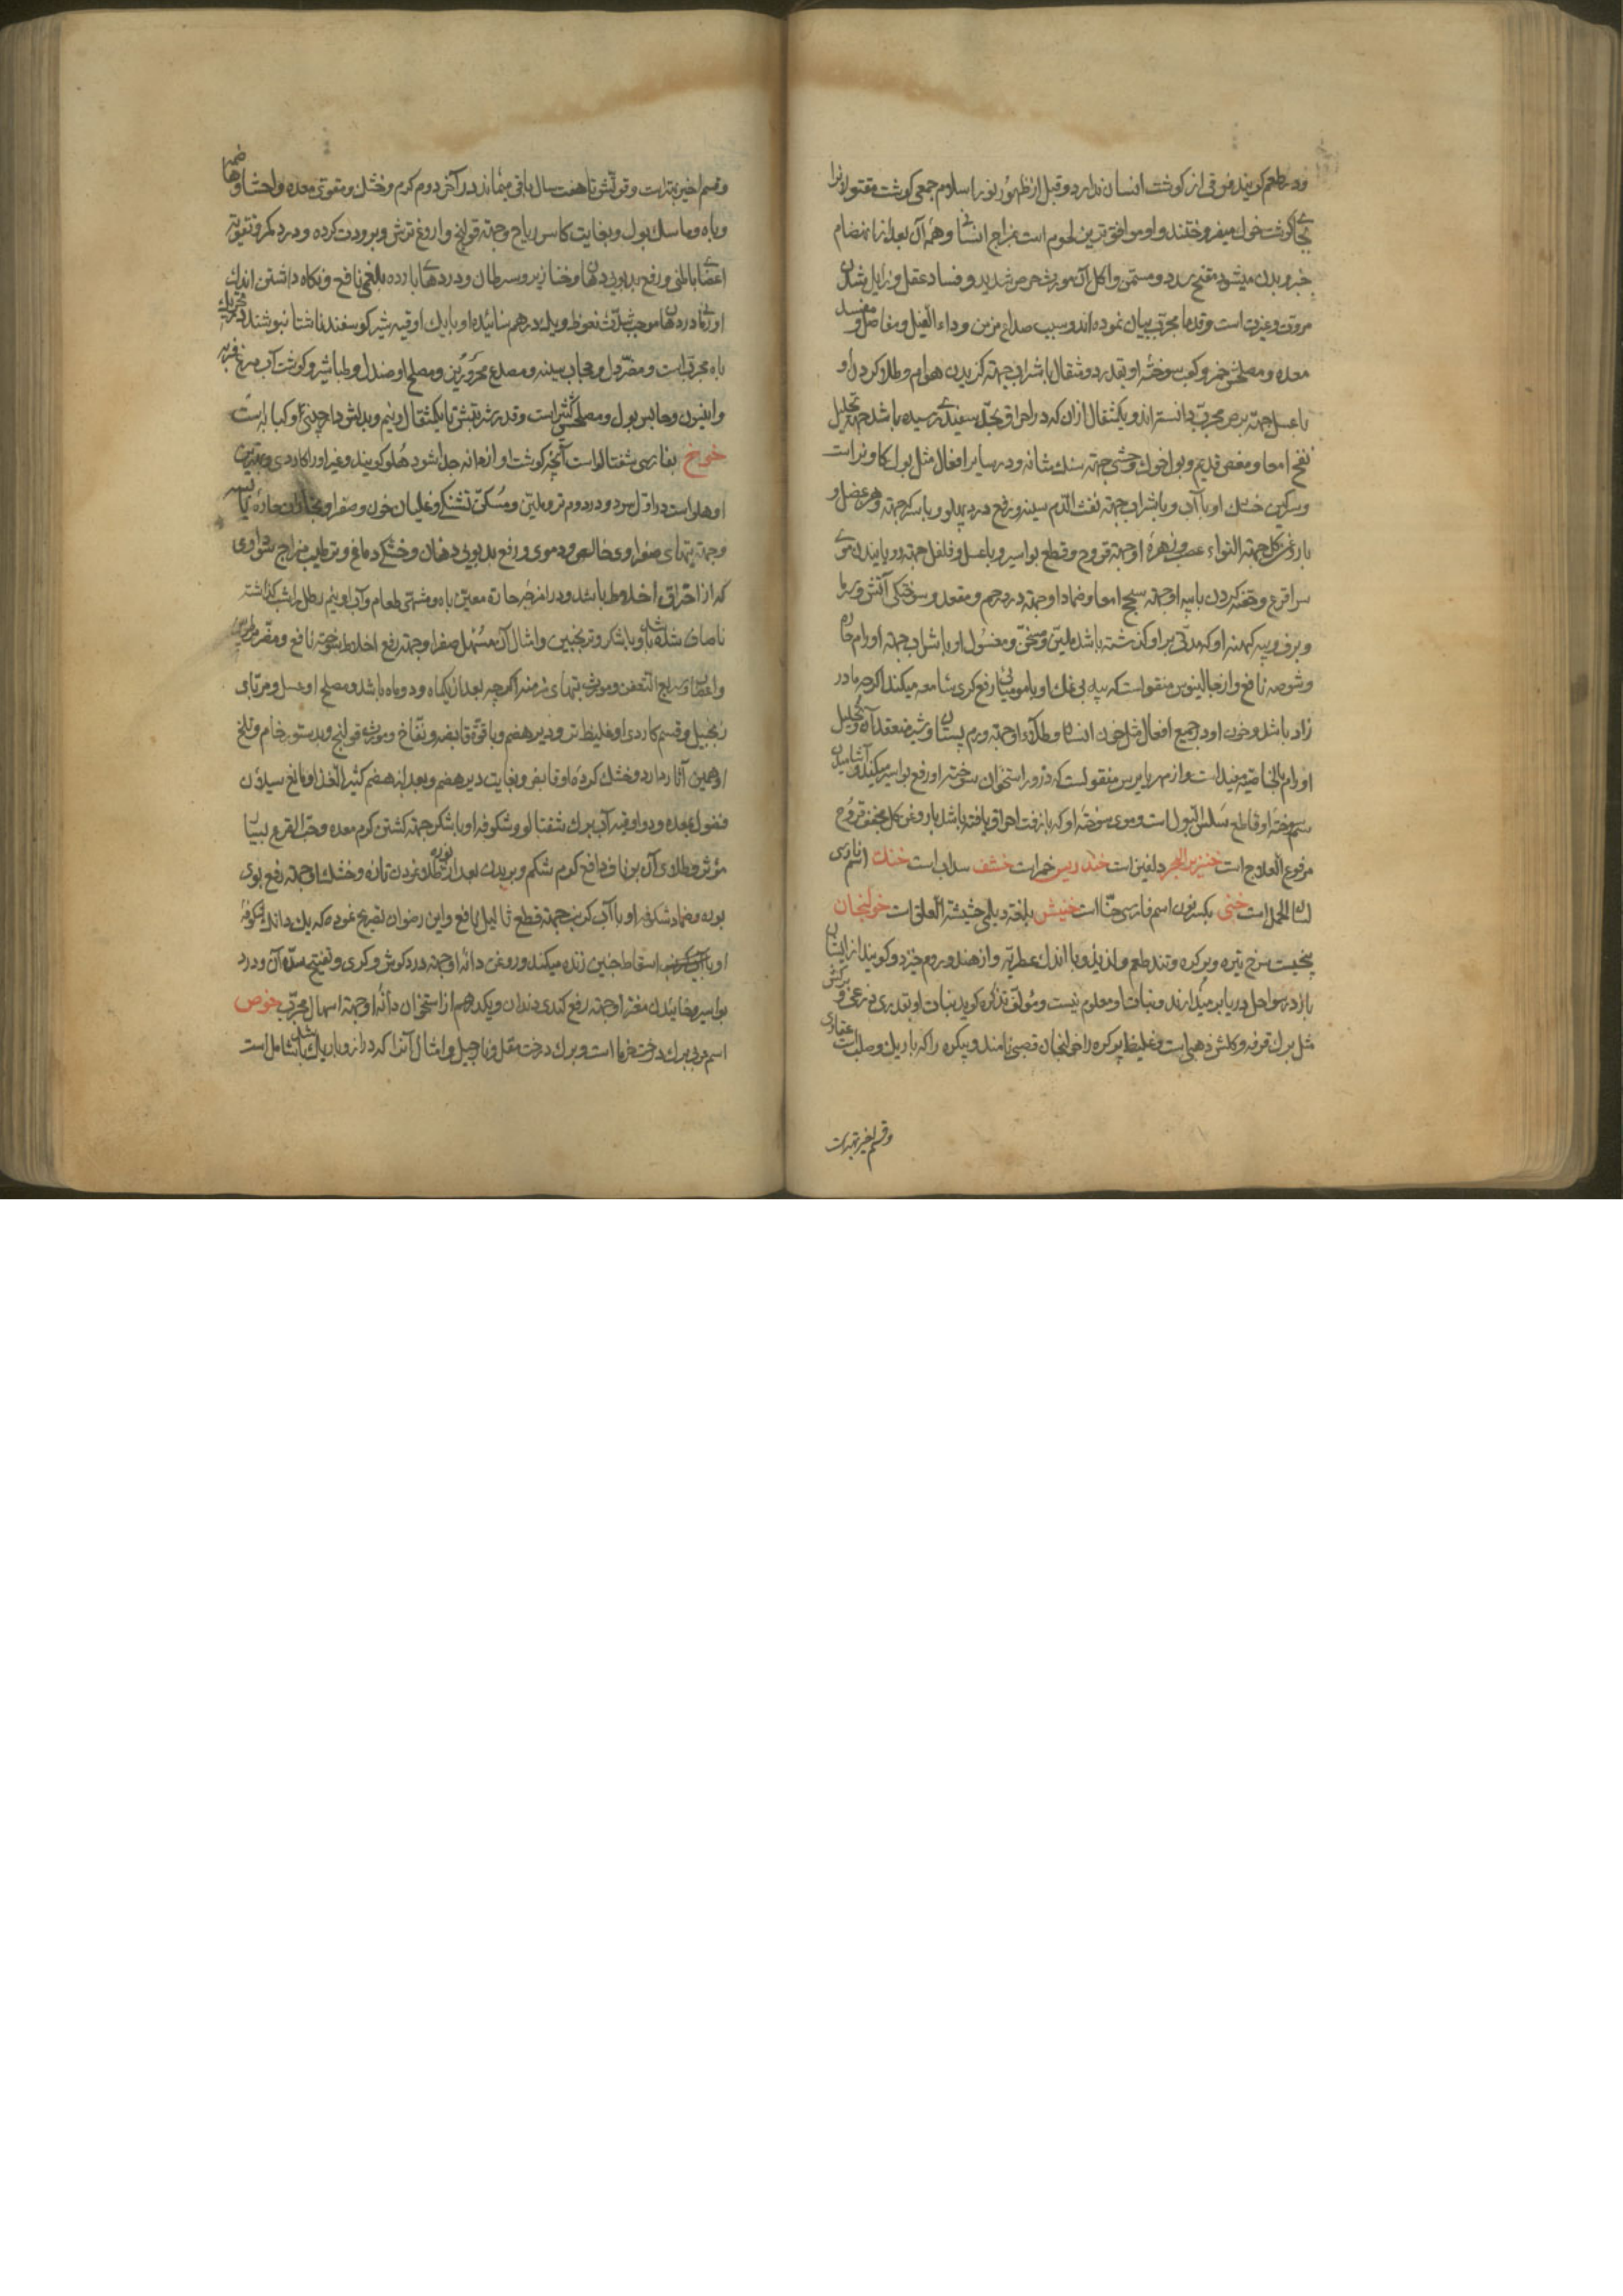 ودر طعم کویند فرقی از کوشت انسان ندارد و قبل از ظهور نور اسلام جمعی کوشت مقتولانرا
بجای کوشت خوک میفروختند و او موافق ترین لحوم است بمزاج انسانی و همهٔ آن بعد از انهضام
جزو بدن میشود مفتح سدد و مسمن و اکل آن مورث حرص شدید و فساد عقل و زایل شدن
مروت و غیرت است و قدما مجرب بیان نموده اند و سبب صداع مزمن و داء الفیل و مفاصل و مفسد
معده و مصلحش خمر و کعب سوختهٔ او بقدر دو مثقال با شراب جهة کزیدن هوام و طلا کردن او
با عسل جهة برص مجرب دانسته اند و یکمثقال از ان که در احراق بحد سفیدی رسیده باشد جهة تحلیل
نفخ امعا و مغص قدیم و بول خوک وحشی جهة سنک مثانه و در سایر افعال مثل بول کاو نر است
و سرکین خشک او با آب و با شراب جهة نفث الدم سینه و رفع درد پهلو و با سرکه جهة وهن عضل و
با روغن کل جهة التواء عصب و زهرهٔ او جهة قروح و قطع بواسیر و با عسل و فلفل جهة رویانیدن موی
سر اقرع و حقنه کردن با پیه او جهة سحج امعا و ضماد او جهة درد رحم و مقعد و سوختکی آتش و سرما
و برف و پیه کهنه او که مدتی بر او کذشته باشد ملین و مسخن و مغسول او با شراب جهة اورام حاره
و شوصه نافع و از جالینوس منقول است که پیه بی نمک او با مومیائی رفع کری سامعه میکند اکرچه مادر
زاد باشد و خون او در جمیع افعال مثل خون انسان و طلاء او جهة ورم پستان و شیر منعقد آن و تحلیل
اورام بالخاصیة مفید است و از مهریاریس منقولست که ذرور استخوان سوختهٔ او رفع بواسیر میکند و آشامیدن
سم سوختهٔ او قاطع سلس البول است و موی سوختهٔ او که با زفت احراق یافته باشد با روغن کل مجفف قروح
مرفوع العلاج است خنزیر البحر دلفین است خندریس خمر است خنشف سداب است خنک اسم فارسی
لسان الحمل است خنی بکسر نون اسم فارسی حنا است خنیش بلغة دیلمی حشیشة العلق است خولنجان
بیخیست سرخ تیره و پر کره و تند طعم و لذیذ و با اندک عطریة و از هند و روم خیزد و کویند از آشیان
باز در سواحل دریا بر میدارند و نبات او معلوم نیست و مؤلف تذکره کوید نبات او بقدر ذرعی و برکش
مثل برک قرفه و کلش ذهبی است و غلیظ پر کره را خولنجان قصبی نامند و بیکره را که باریک و صلب است عقاربی
و قسم اخیر بهتر است
و قسم اخیر بهتر است و قوتش تا هفت سال باقی میماند در آخر دوم کرم و خشک و مقوی معده و احشا و هاضمه
و باه و ماسک بول و بغایت کاسر ریاح و جهة قولنج و آروغ ترش و برودت کرده و درد کمر و تقویة
اعضای باطنی و رفع بدبویی دهان و خنازیر و سرطان و دردهای بارده بلغمی نافع و نکاه داشتن اندک
او در دهان موجب شدت نعوظ و یک درهم سائیده او با یک اوقیه شیر کوسفند ناشتا بنوشند در تحریک
باه مجرب است و مضر دل و حجاب سینه و مصدع محرورین و مصلح او صندل و طباشیر و کوشت آب مرغ فربه
و انیسون و حابس بول و مصلحش کثیر است و قدر شربتش تا یکمثقال و نیم و بدلش دارچینی او کبابه است
خوخ بفارسی شفتالو است آنچه کوشت او از دانه جدا شود هلو کویند و غیر او را کاردی و بهترین
او هلو است در اول سرد و در دوم تر و ملین و مسکن تشنکی و غلیان خون و صفرا و بخارات حاره یابسه
و جهة تبهای صفراوی خالص و دموی و رفع بدبویی دهان و خشکی دماغ و ترطیب مزاج سوداوی
که از احتراق اخلاط باشد و در امزجهٔ حاره معین باه و مشهی طعام و آب او نیم رطل را شب کذاشته
تا صاف شده باشد و با شکر و ترنجبین و امثال آن مسهل صفرا و جهة رفع اخلاط سوخته نافع و مضر مرطوبین
و اعصاب و سریع التعفن و مورث تبهای مزمنه اکرچه بعد از یکماه و دو ماه باشد و مصلح او عسل و مربای
زنجبیل و قسم کاردی او غلیظ تر و دیر هضم و با قوة قابضه و نفاخ و مورث قولنج و بدستور خام و تلخ
او همین آثار دارد و خشک کردهٔ او قابض و بغایت دیر هضم و بعد از هضم کثیر الغذا و مانع سیلان
فضول بمعده و دو اوقیه آب برک شفتالو و شکوفهٔ او با شکر جهة کشتن کرم معده و حب القرع بیبای
مؤثر و طلاء آن بر ناف دافع کرم شکم و بریدن بعد از نوره طلا نمودن تازه و خشک او جهة رفع بوی
نوره و ضماد شکوفه او با آب کرنب جهة قطع ثالیل نافع و ابن رضوان تصریح نموده که یک دانک شکوفهٔ
او با آب کرنب اسقاط جنین زنده میکند و روغن دانهٔ او جهة درد کوش و کری و تفتیح سدهٔ آن و درد
بواسیر و خائیدن مغز او جهة رفع کندی دندان و یکدرهم از استخوان دانهٔ او جهة اسهال مجرب خوص
اسم عربی برک درخت خرما است و برک درخت مقل و نارجیل و امثال آنرا که دراز و باریک باشد شامل است